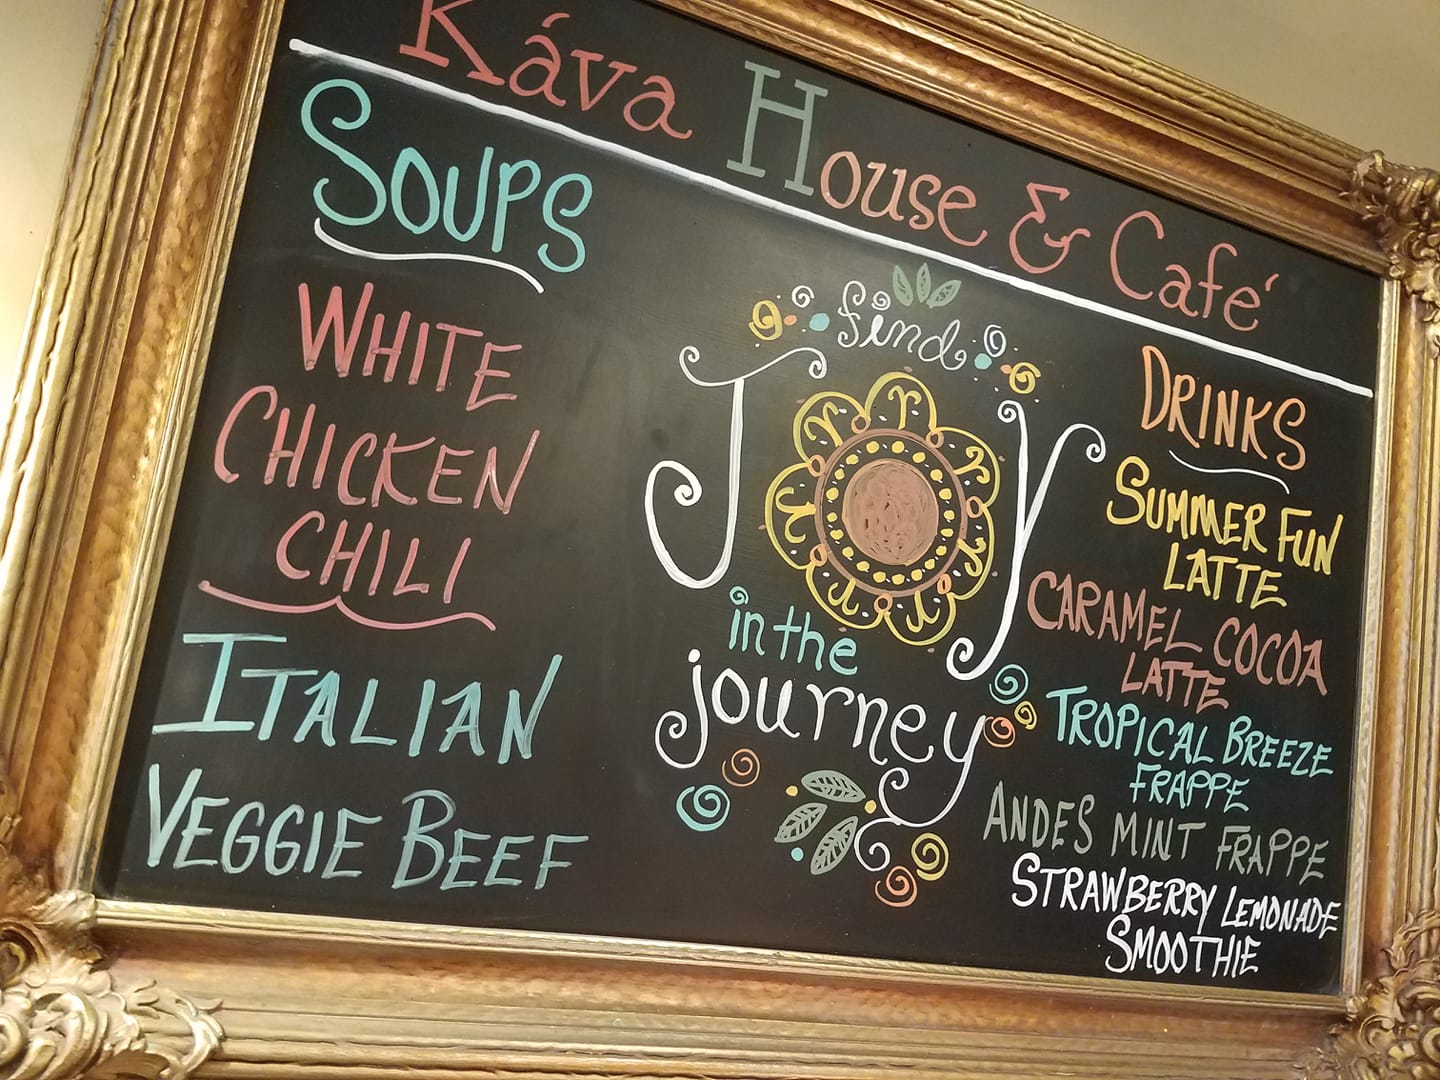 Káva House & Café
SOUPS
WHITE
CHICKEN
CHILI
ITALIAN
VEGGIE BEEF
find
JOY
in the
journey
DRINKS
SUMMER FUN
LATTE
CARAMEL COCOA
LATTE
TROPICAL BREEZE
FRAPPE
ANDES MINT FRAPPE
STRAWBERRY LEMONADE
SMOOTHIE